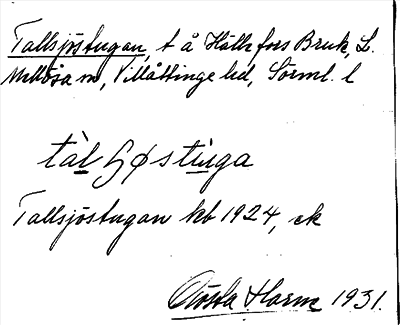 Tallsjöstugan, t å Hälleforsbruk, L.
Mellösa sn, Villåttinge hd, Sörml. l
tàlʃøstùga
Tallsjöstugan kb 1924, ek
Gösta Harm 1931.